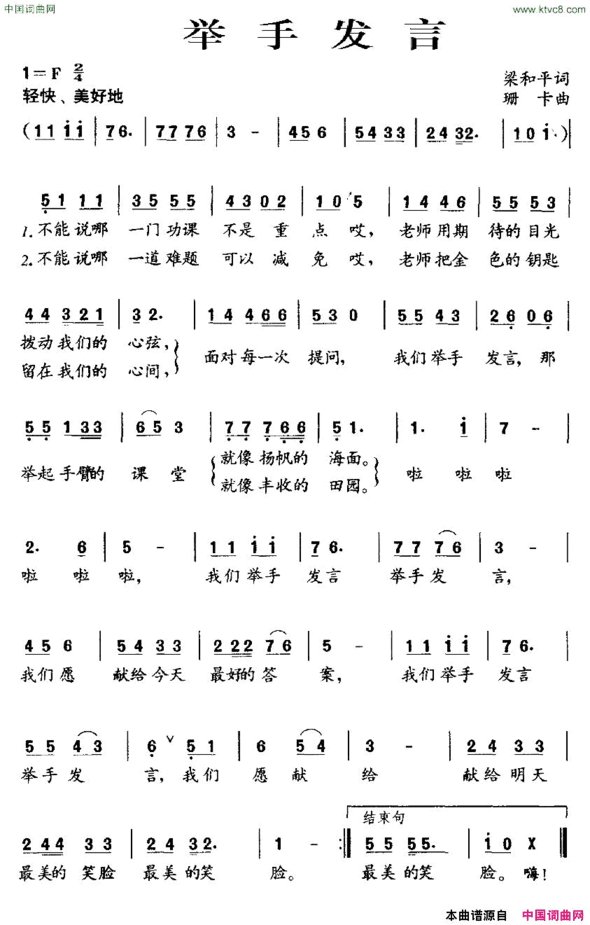 中国词曲网
www.ktvc8.com
举手发言
1=F 2/4
梁和平词
轻快、美好地
珊卡曲
(11 i i | 76. | 77 76 | 3 - | 45 6 | 54 33 | 24 32. | 10 i. )
51 11 | 35 55 | 43 02 | 10 5 | 14 46 | 55 53
1.不能说哪 一门功课 不是重 点哎, 老师用期 待的目光
2.不能说哪 一道难题 可以减 免哎, 老师把金 色的钥匙
44 321 | 32. | 14 466 | 53 0 | 55 43 | 26 06
拨动我们的 心弦,
留在我们的 心间,
面对每一次 提问, 我们举手 发言,那
55 133 | 65 3 | 77 766 | 51. | 1. i | 7 -
举起手臂的 课堂
就像扬帆的 海面。
就像丰收的 田园。
啦 啦 啦
2. 6 | 5 - | 11 i i | 76. | 77 76 | 3 -
啦 啦 啦, 我们举手 发言 举手发 言,
45 6 | 54 33 | 222 76 | 5 - | 11 i i | 76.
我们愿 献给今天 最好的答 案, 我们举手 发言
55 43 | 6 ∨ 51 | 6 54 | 3 - | 24 33
举手发 言,我们 愿献 给 献给明天
结束句
244 33 | 24 32. | 1 - :| 55 55. | i 0 X
最美的 笑脸 最美的笑 脸。 最美的笑 脸。嗨!
本曲谱源自 中国词曲网